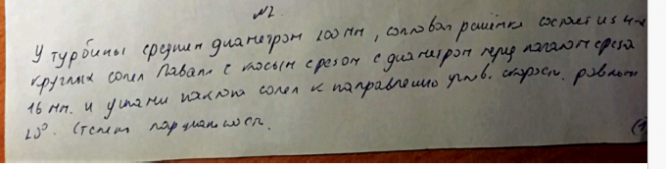 №2.
У турбины средним диаметром 200 мм, сопловая решётка состоит из 4-х
круглых сопел Лаваля с косым срезом с диаметром перед началом среза
16 мм. и углами наклона сопел к направлению углов. скорост. равным
20°. Степень парциальност.